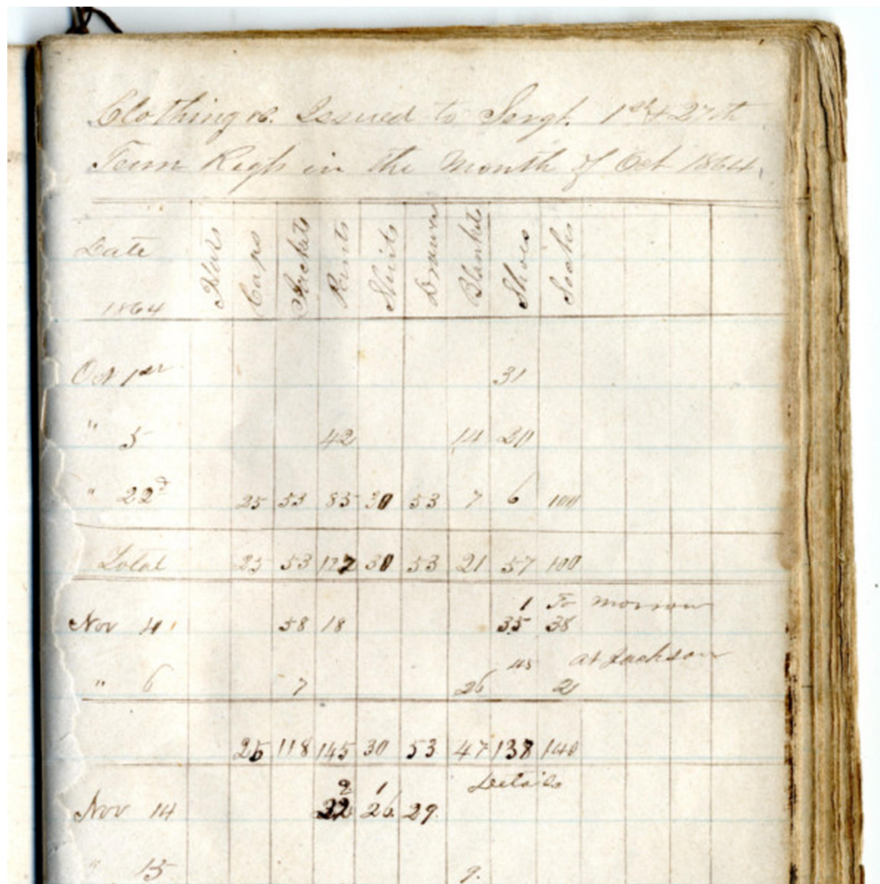 Clothing &c. Issued to Sergt. 1st & 27th
Tenn Regts in the Month of Oct 1864.
Date 1864 Hats Caps Jackets Pants Shirts Drawers Blankets Shoes Socks
Oct 1st 31
" 5 42 14 20
" 22d 25 53 85 30 53 7 6 100
Total 25 53 127 30 53 21 57 100
1 To Morrow
Nov 4 58 18 35 38
45 at Jackson
" 6 7 26 2
25 118 145 30 53 47 138 140
2 1 Details
Nov 14 32 26 29
" 15 9.